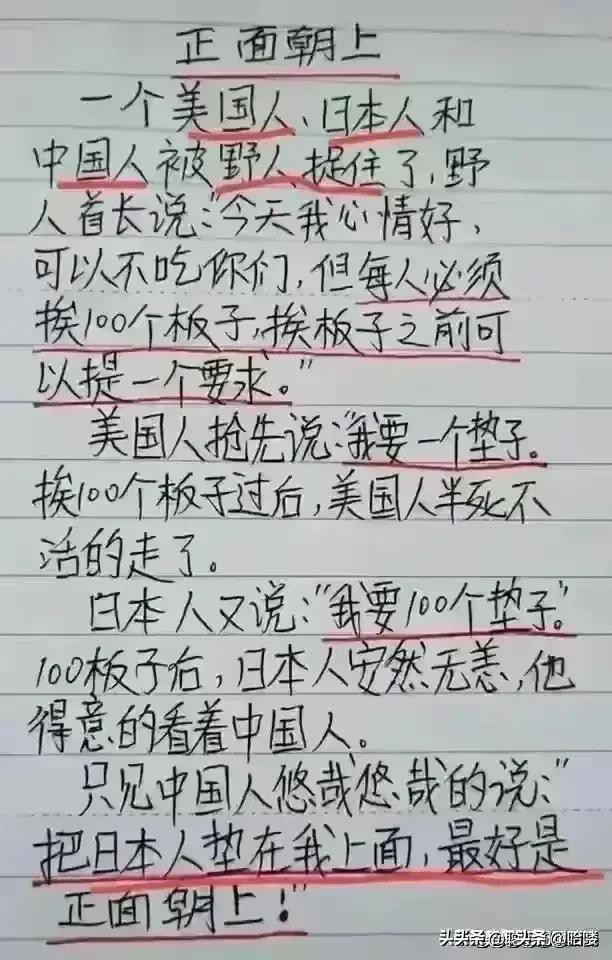 正面朝上
一个美国人、日本人和
中国人被野人捉住了,野
人酋长说:"今天我心情好,
可以不吃你们,但每人必须
挨100个板子,挨板子之前可
以提一个要求。"
美国人抢先说:"我要一个垫子。
挨100个板子过后,美国人半死不
活的走了。
日本人又说:"我要100个垫子。"
100板子后,日本人安然无恙,他
得意的看着中国人。
只见中国人悠哉悠哉的说:"
把日本人垫在我上面,最好是
正面朝上!"
头条@哈喽